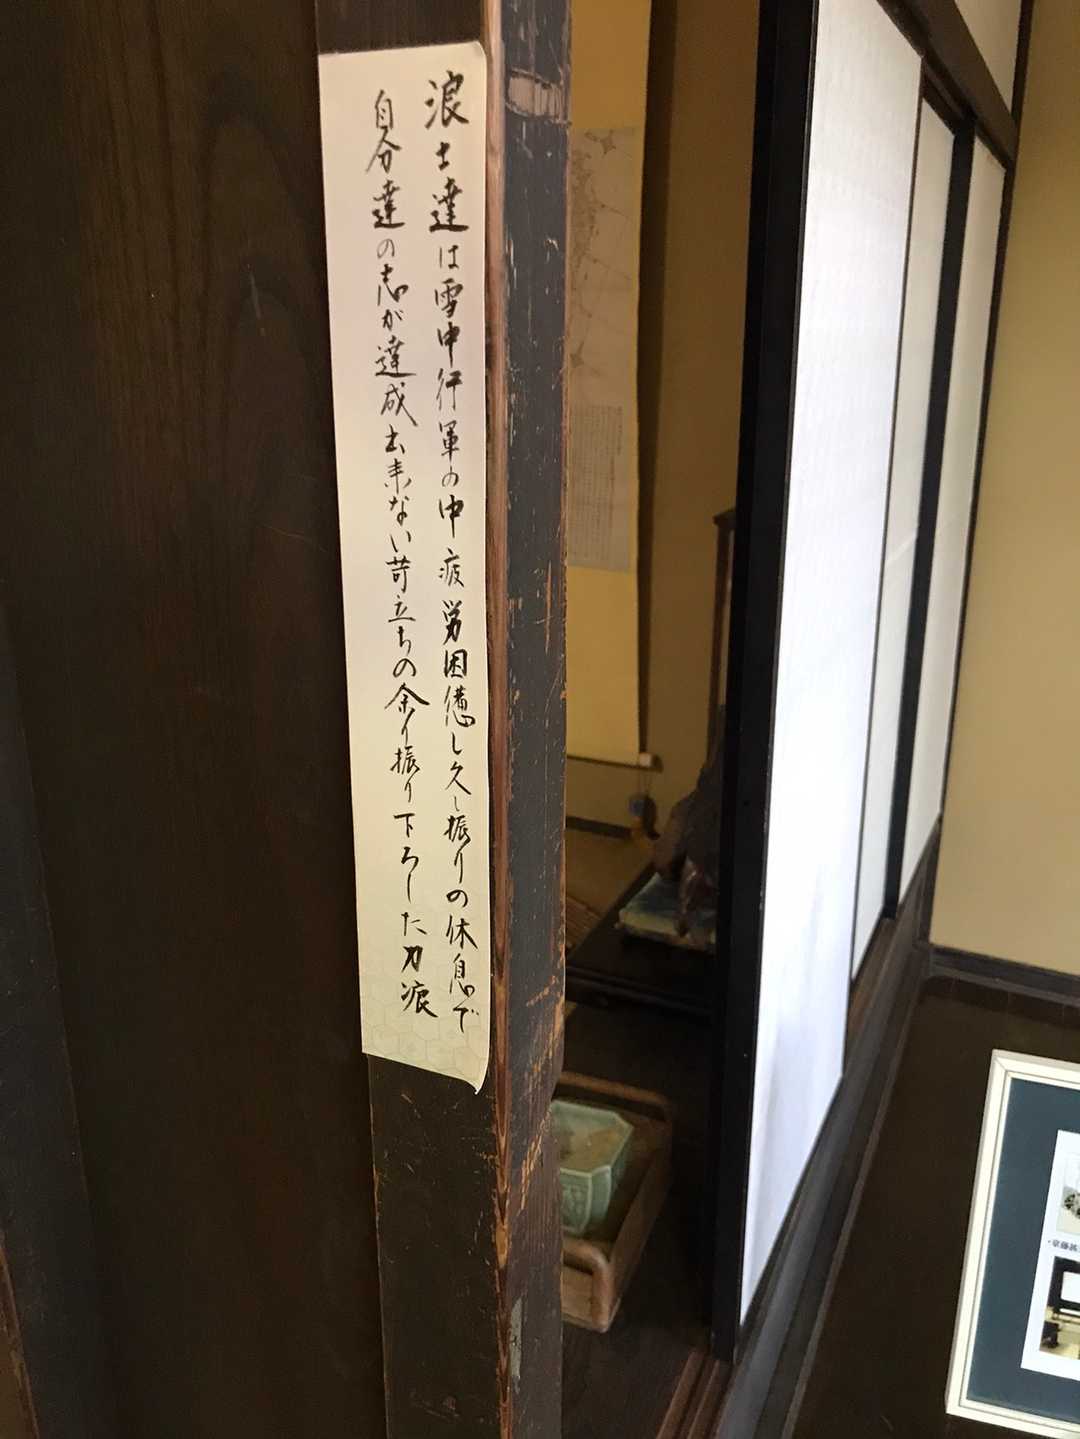 浪士達は雪中行軍の中疲労困憊し久し振りの休息で
自分達の志が達成出来ない苛立ちの余り振り下ろした刀痕